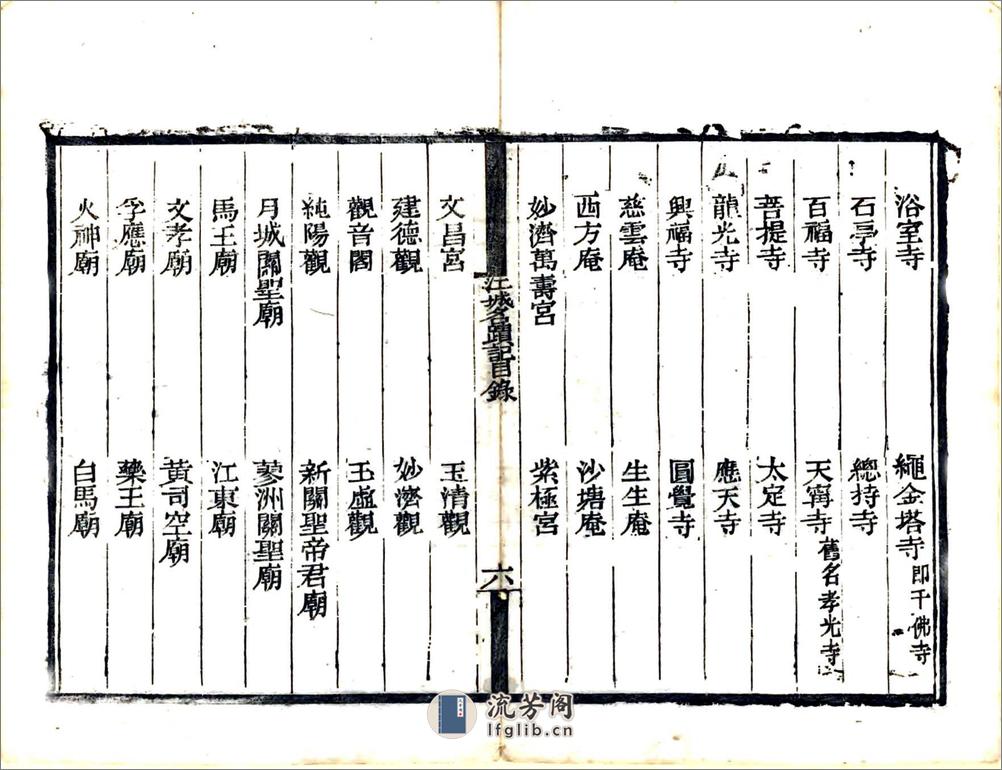 浴室寺　繩金塔寺即千佛寺
石亭寺　總持寺
百福寺　天寧寺舊名孝光寺
菩提寺　太定寺
龍光寺　應天寺
興福寺　圓覺寺
慈雲庵　生生庵
西方庵　沙塘庵
妙濟萬壽宮　紫極宮
江城名蹟記目錄　六
文昌宮　玉清觀
建德觀　妙濟觀
觀音閣　玉虛觀
純陽觀　新關聖帝君廟
月城關聖廟　蓼洲關聖廟
馬王廟　江東廟
文孝廟　黃司空廟
孚應廟　藥王廟
火神廟　白馬廟
流芳阁
lfglib.cn